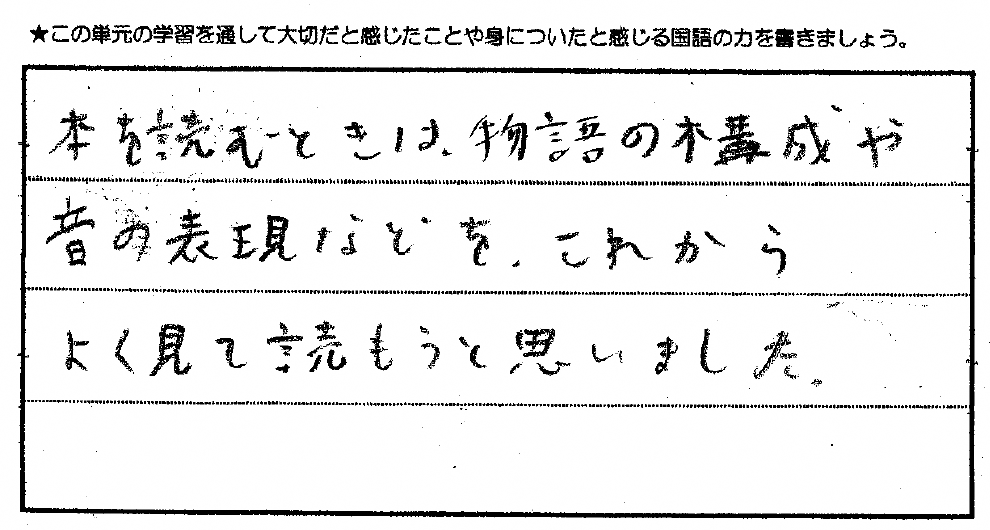 ★この単元の学習を通して大切だと感じたことや身についたと感じる国語の力を書きましょう。
本を読むときは、物語の構成や
音の表現などを、これから
よく見て読もうと思いました。